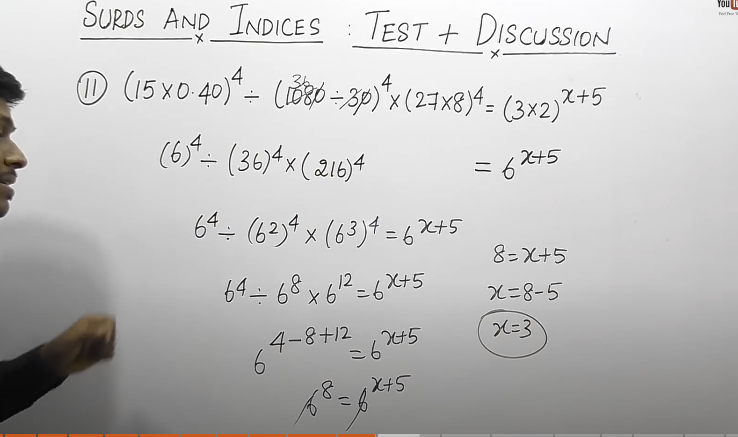 SURDS AND INDICES : TEST + DISCUSSION
You
(11) (15×0.40)^4 ÷ (1080÷30)^4×(27×8)^4=(3×2)^x+5
36
(6)^4 ÷ (36)^4×(216)^4 = 6^x+5
6^4 ÷ (6^2)^4 × (6^3)^4 = 6^x+5
8=x+5
6^4 ÷ 6^8 × 6^12 = 6^x+5
x=8-5
x=3
6^4-8+12 = 6^x+5
6^8 = 6^x+5